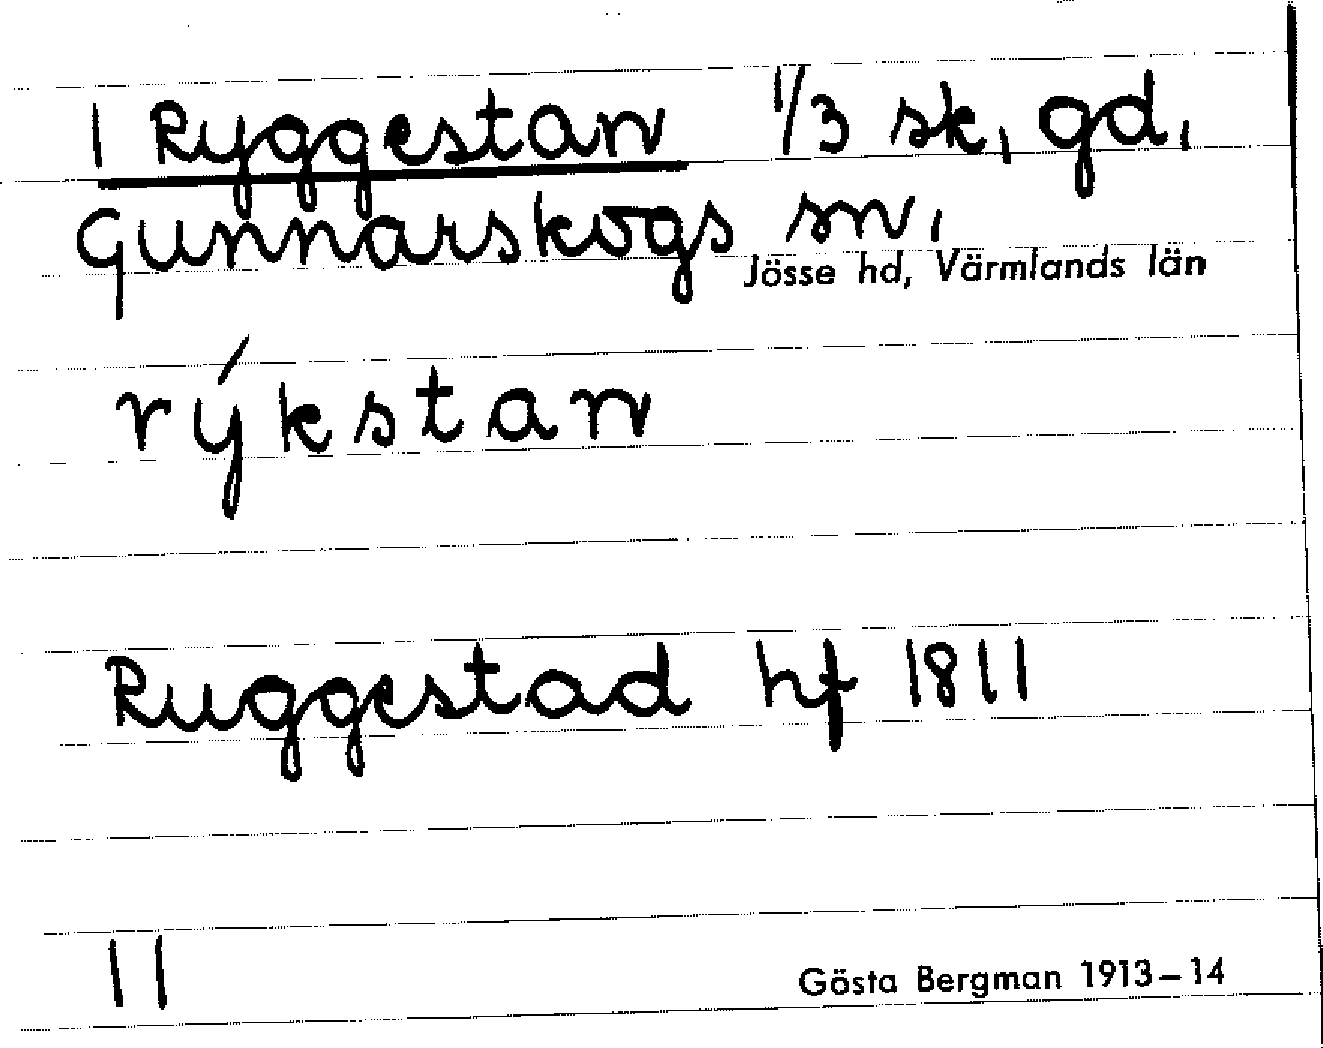 1 Ryggestan 1/3 sk, gd,
Gunnarskogs sn,
Jösse hd, Värmlands län
rýkstan
Ruggestad hf 1811
11
Gösta Bergman 1913–14